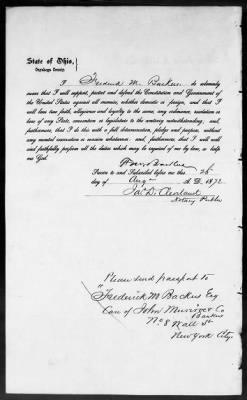 State of Ohio,
Cuyahoga County.
I Frederick M. Backus do solemnly
swear that I will support, protect and defend the Constitution and Government of
the United States against all enemies, whether domestic or foreign, and that I
will bear true faith, allegiance and loyalty to the same, any ordinance, resolution or
law of any State, convention or legislature to the contrary notwithstanding, and
furthermore, that I do this with a full determination, pledge and purpose, without
any mental reservation or evasion whatsoever: and, furthermore, that I will well
and faithfully perform all the duties which may be required of me by law, so help
me God.
Fred M Backus
Sworn to and Subscribed before me this 26
day of Aug A. D. 1872
Jas D. Cleveland
Notary Public
Please send passport to
Frederick M Backus Esq
Care of John Munroe & Co
Bankers
No 8 Wall St
New York City.